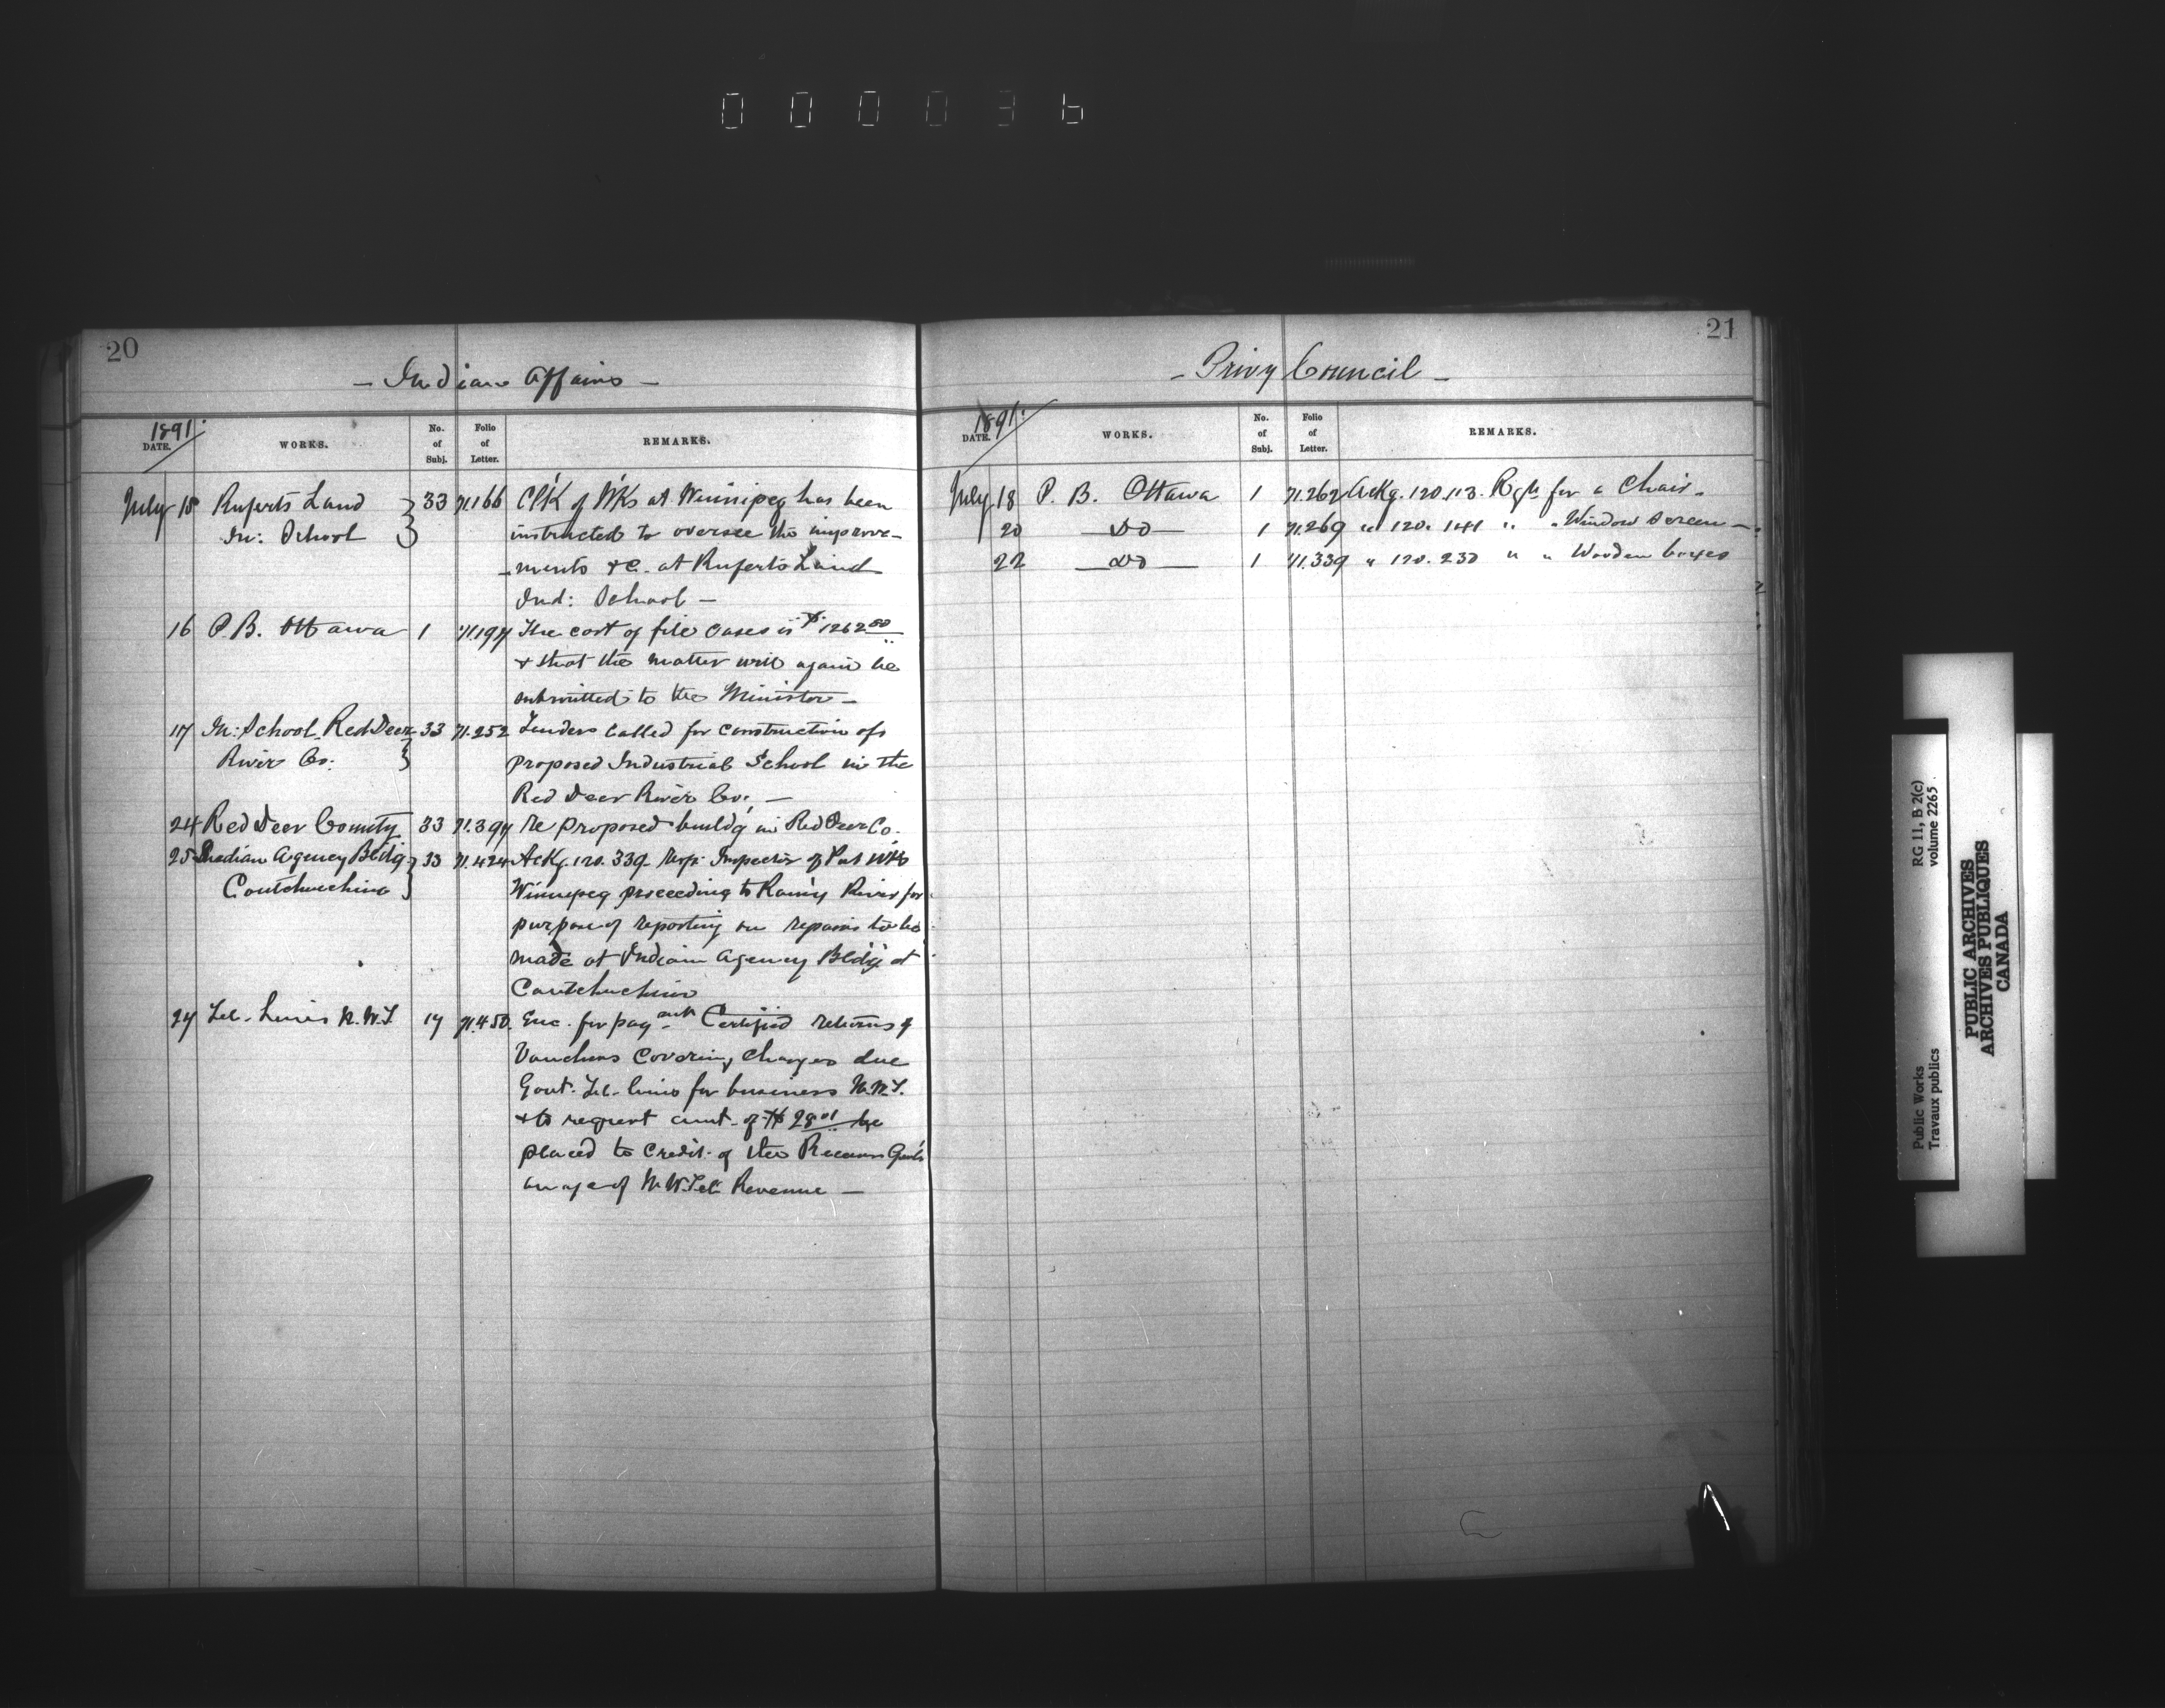 0 0 0 0 3 6
20
- Indian Affairs -
1891.
DATE. WORKS. No. of Subj. Folio of Letter. REMARKS.
July 15 Ruperts Land 33 71.166 Cl'k of W'Ks at Winnipeg has been
In: School instructed to oversee the improve-
-ments &c. at Ruperts Land
Ind: School -
16 P.B. Ottawa 1 71.197 The cost of file cases is $1262.50
& that the matter will again be
submitted to the Minister -
17 In: School Red Deer 33 71.252 Tenders called for construction of
River Co: proposed Industrial School in the
Red Deer River Co: -
24 Red Deer County 33 71.397 Re proposed buildg in Red Deer Co.
25 Indian Agency Bldg. 33 71.424 Ackg. 120.339 Inspector of Pub Wks
Coutcheching Winnipeg proceeding to Rainy River for
purpose of reporting on repairs to be
made at Indian Agency Bldg at
Coutcheching
27 Tel. Lines N.W.T. 17 71.450. Enc. for payment Certified returns of
Vouchers covering charges due
Govt. Tel. lines for business N.W.T.
& to request amt. of $28.01 be
placed to Credit of the Receiver Gen'ls
on a/c of N.W. Tel. Revenue -
21
- Privy Council -
1891.
DATE. WORKS. No. of Subj. Folio of Letter. REMARKS.
July 18 P. B. Ottawa 1 71.262 Ackg. 120.113. Reqn for a Chair.
20 - Do - 1 71.269 " 120.141 " " Window Screen -
22 - Do - 1 71.339 " 120.230 " " Wooden boxes
Public Works
Travaux publics
RG 11, B 2(c)
volume 2265.
PUBLIC ARCHIVES
ARCHIVES PUBLIQUES
CANADA